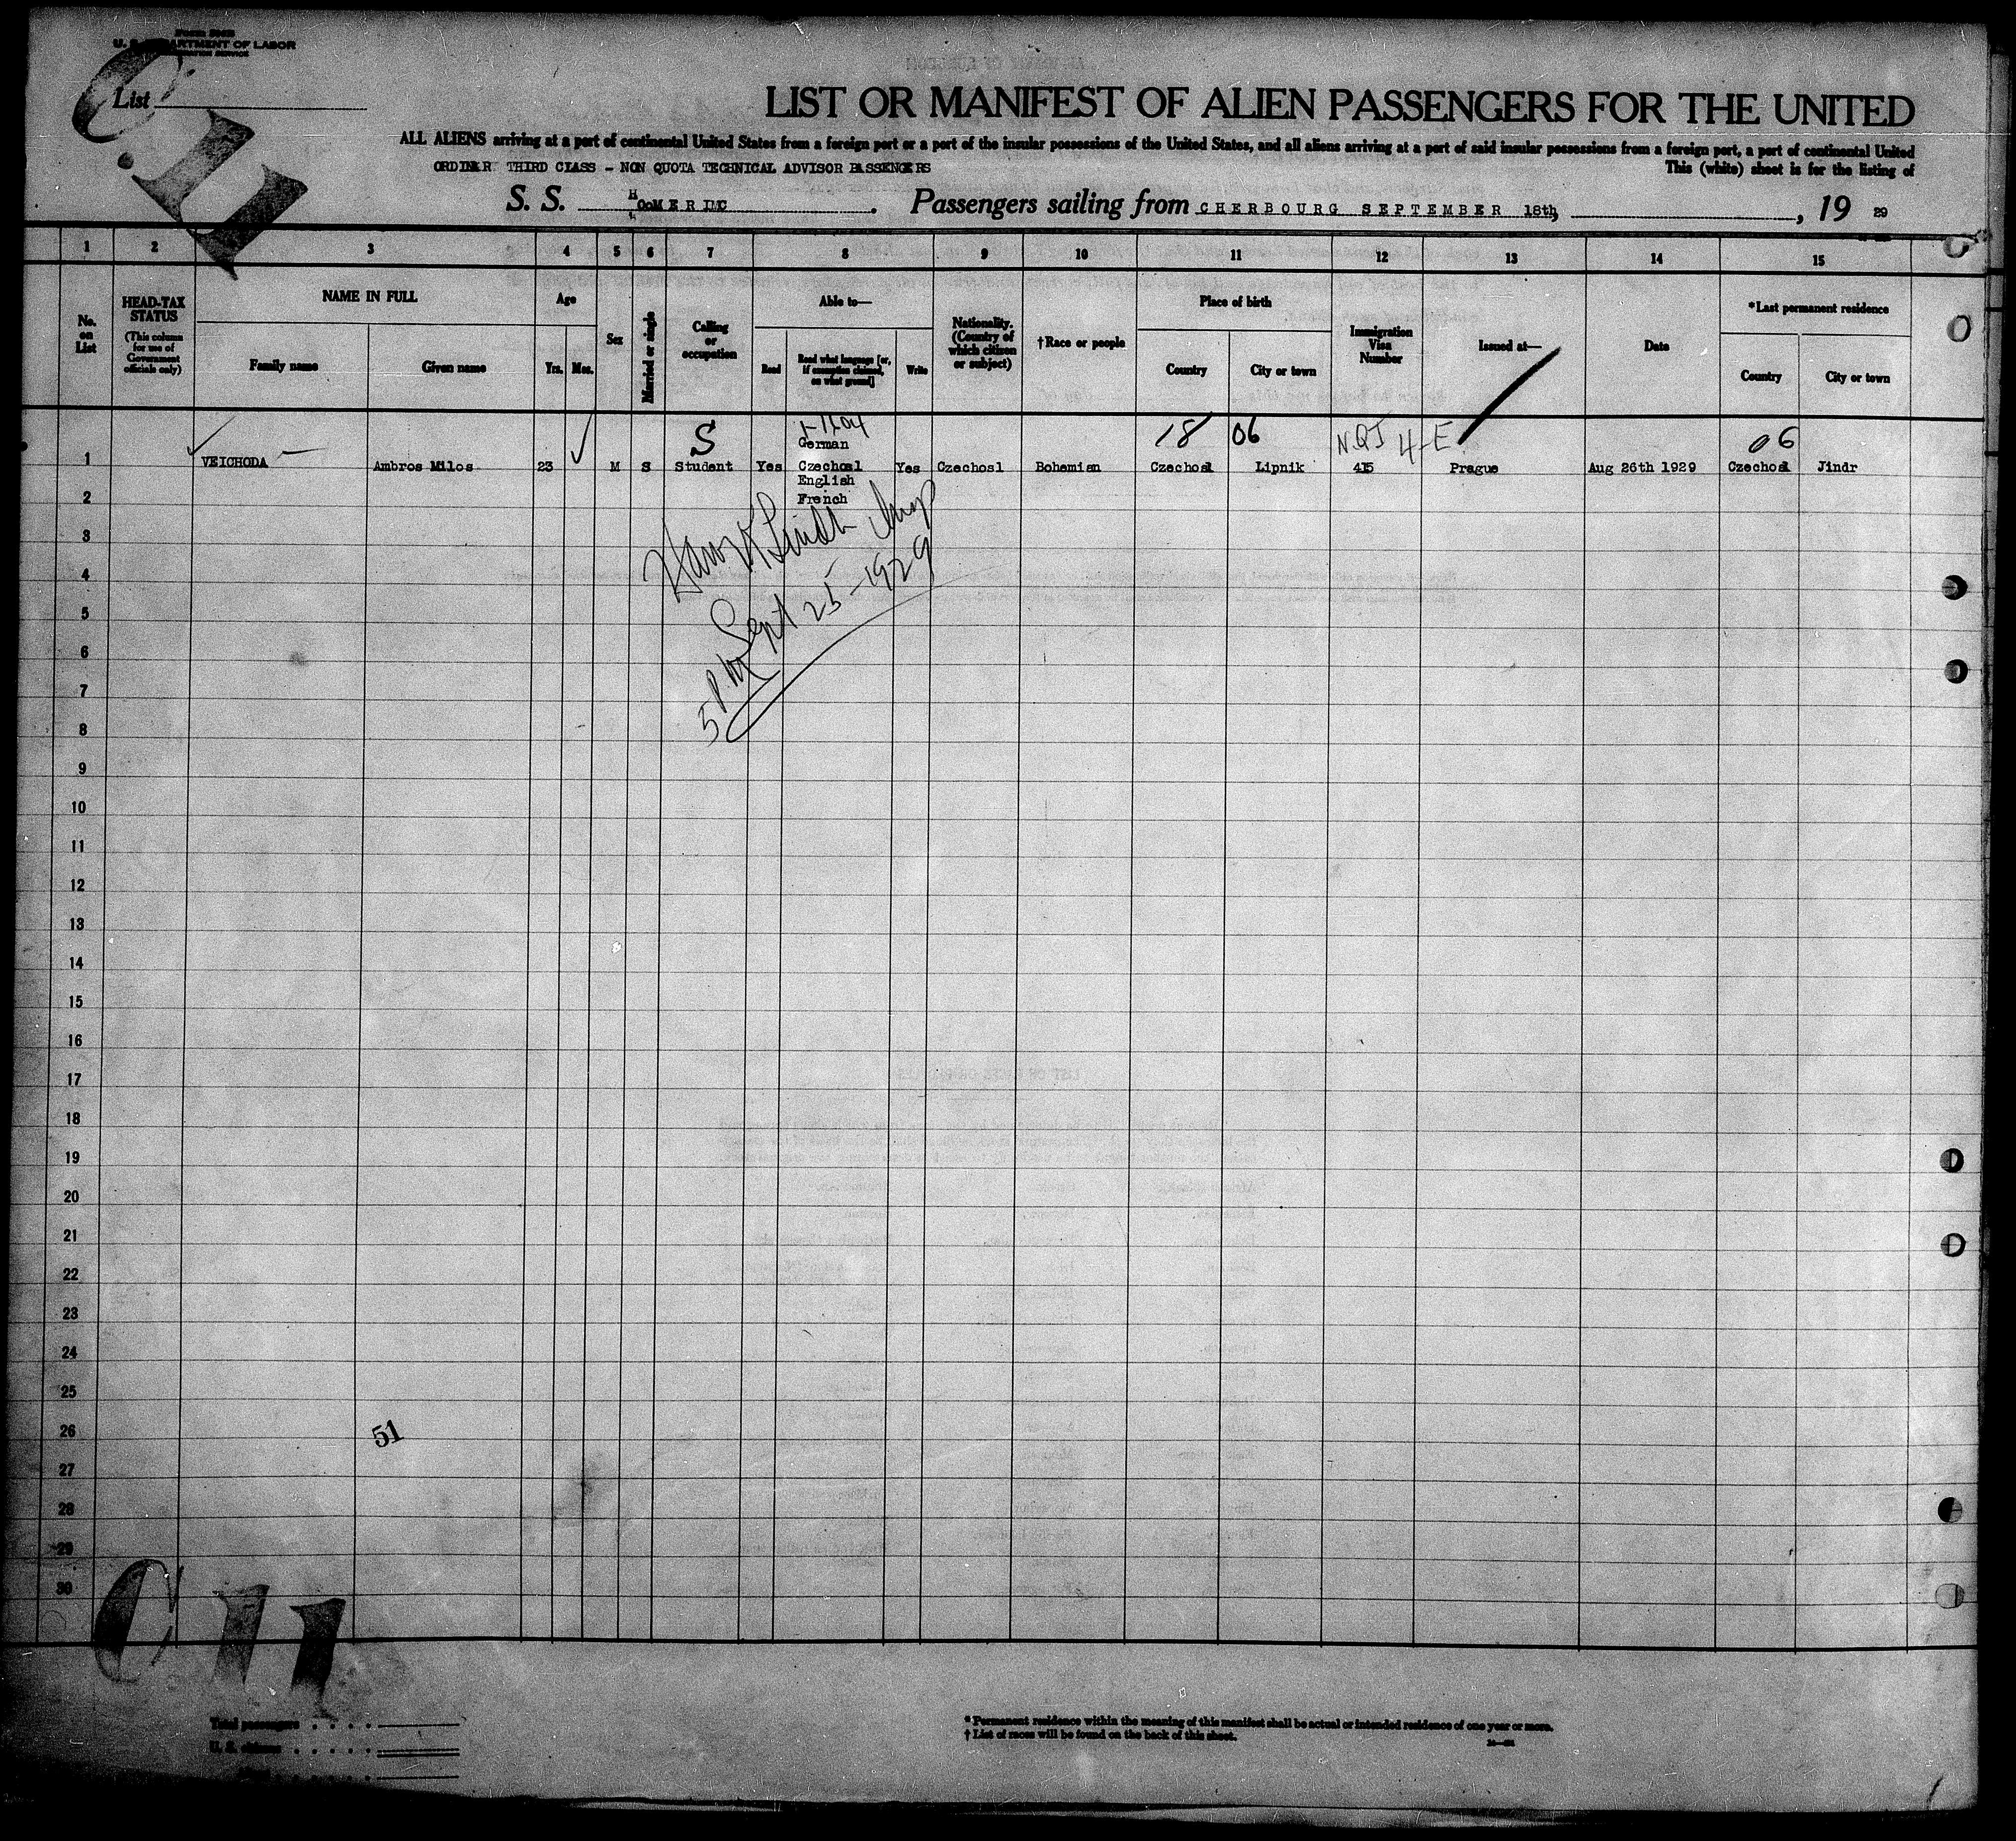 U. S. DEPARTMENT OF LABOR
List
LIST OR MANIFEST OF ALIEN PASSENGERS FOR THE UNITED
ALL ALIENS arriving at a port of continental United States from a foreign port or a port of the insular possessions of the United States, and all aliens arriving at a port of said insular possessions from a foreign port, a port of continental United
ORDINER THIRD CLASS - NON QUOTA TECHNICAL ADVISOR PASSENGERS
This (white) sheet is for the listing of
S. S. Passengers sailing from CHERBOURG SEPTEMBER 18th, , 19 29
1 2 3 4 5 6 7 8 9 10 11 12 13 14 15
No. on List
HEAD-TAX STATUS
(This column for use of Government officials only)
NAME IN FULL
Family name Given name
Age
Yrs. Mos.
Sex
Married or single
Calling or occupation
Able to—
Read Read what language [or, if exemption claimed, on what ground] Write
Nationality. (Country of which citizen or subject)
†Race or people
Place of birth
Country City or town
Immigration Visa Number
Issued at—
Date
*Last permanent residence
Country City or town
S 18 06 NQI 4-E 06
German
1 VEICHODA Ambros Milos 23 M S Student Yes Czechosl Yes Czechosl Bohemian Czechosl Lipnik 415 Prague Aug 26th 1929 Czechosl Jindr
English
2 French
3
4
Sept 25-1929
5
6
5 PM
7
8
9
10
11
12
13
14
15
16
17
18
19
20
21
22
23
24
25
26 51
27
28
29
30
C 11
Total passengers
U. S. citizens
* Permanent residence within the meaning of this manifest shall be actual or intended residence of one year or more.
† List of races will be found on the back of this sheet.